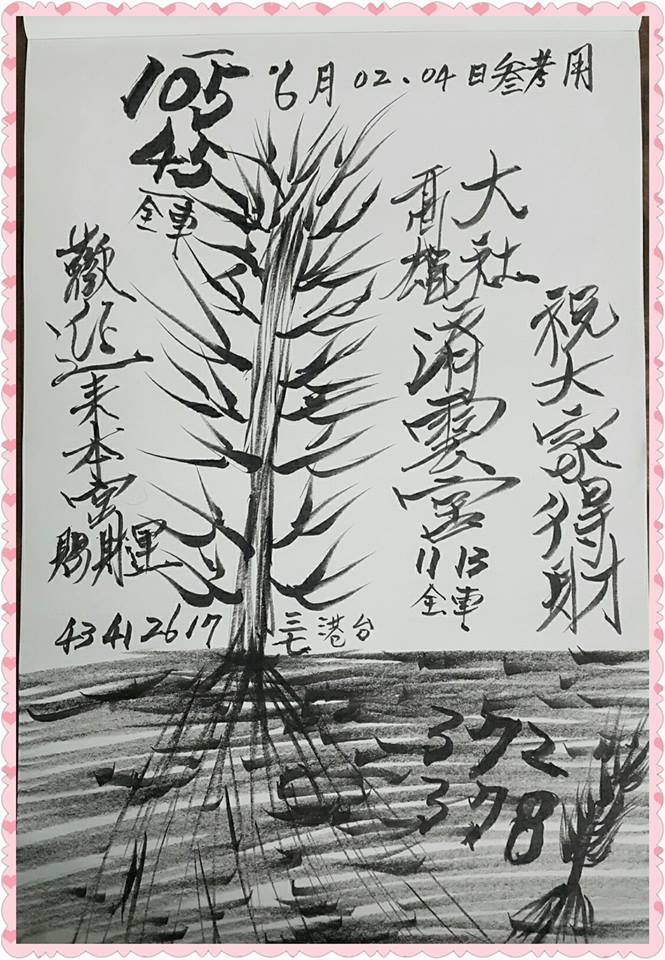 105.6月02.04日叄考用
45
全車
高雄
大社
濟雲宮
11 13
全車
祝大家得財
歡迎來本宮
賜財運
43 41 26 17
三七
港台
372
378